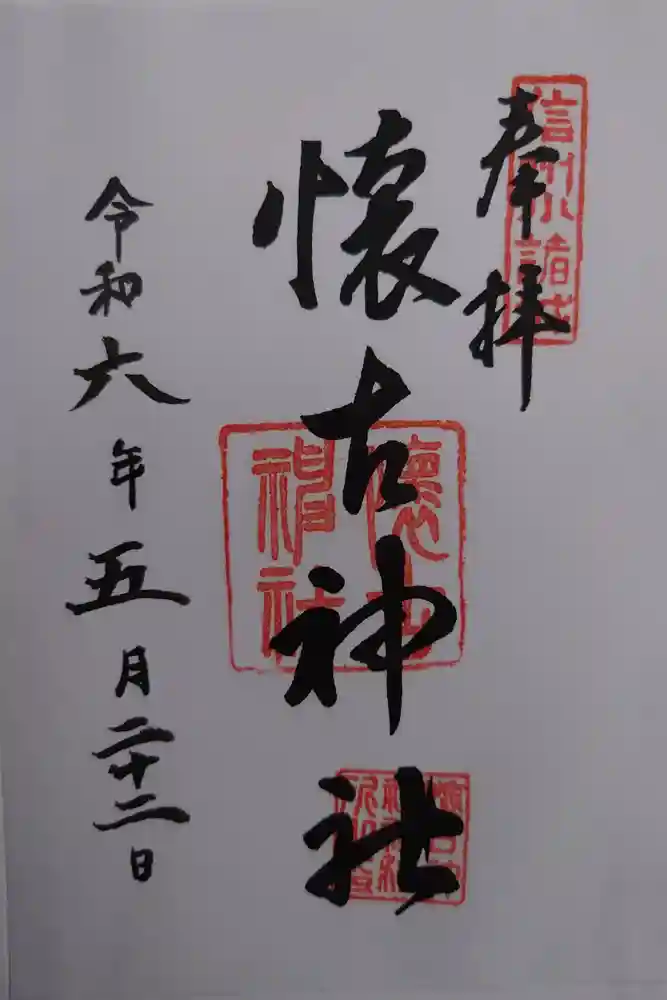 奉拝
信州小諸城
懐古神社
懐古神社
令和六年五月二十二日